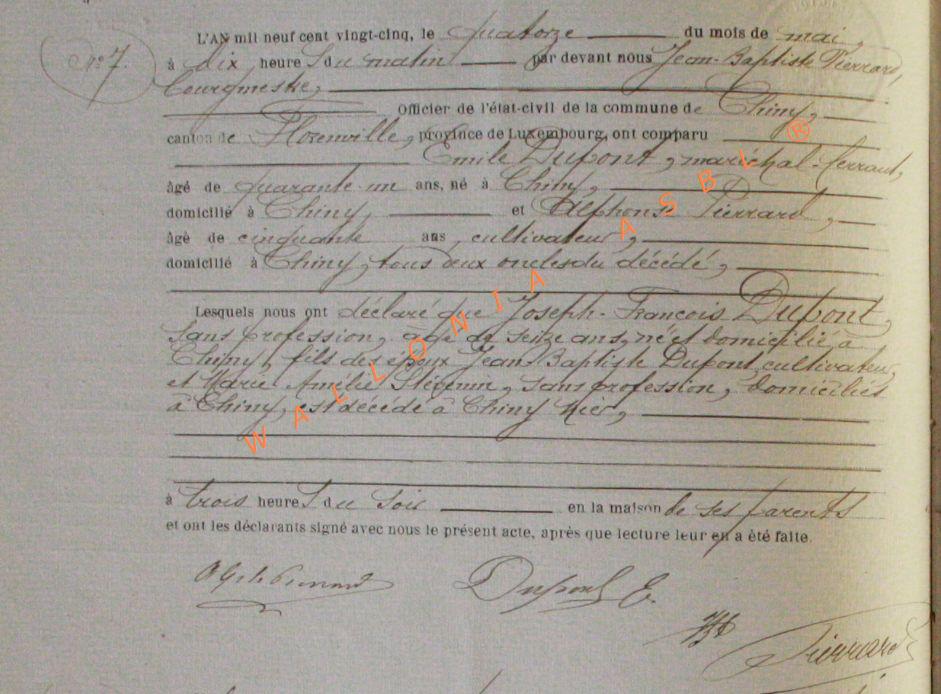 N° 7.
L'AN mil neuf cent vingt-cinq, le quatorze du mois de mai,
à dix heures du matin par devant nous Jean-Baptiste Pierrard,
bourgmestre,
Officier de l'état-civil de la commune de Chiny,
canton de Florenville, province de Luxembourg, ont comparu
Emile Dupont, maréchal-ferrant,
âgé de quarante-un ans, né à Chiny,
domicilié à Chiny, et Alphonse Pierrard,
âgé de cinquante ans, cultivateur,
domicilié à Chiny, tous deux oncles du décédé,
Lesquels nous ont déclaré que Joseph-François Dupont,
sans profession, âgé de seize ans, né et domicilié à
Chiny, fils des époux Jean-Baptiste Dupont, cultivateur,
et Marie Amélie Stévenin, sans profession, domiciliés
à Chiny, est décédé à Chiny hier,
à trois heures du soir en la maison de ses parents
et ont les déclarants signé avec nous le présent acte, après que lecture leur en a été faite.
Dupont E.
Pierrard
WALLONIA ASBL ®